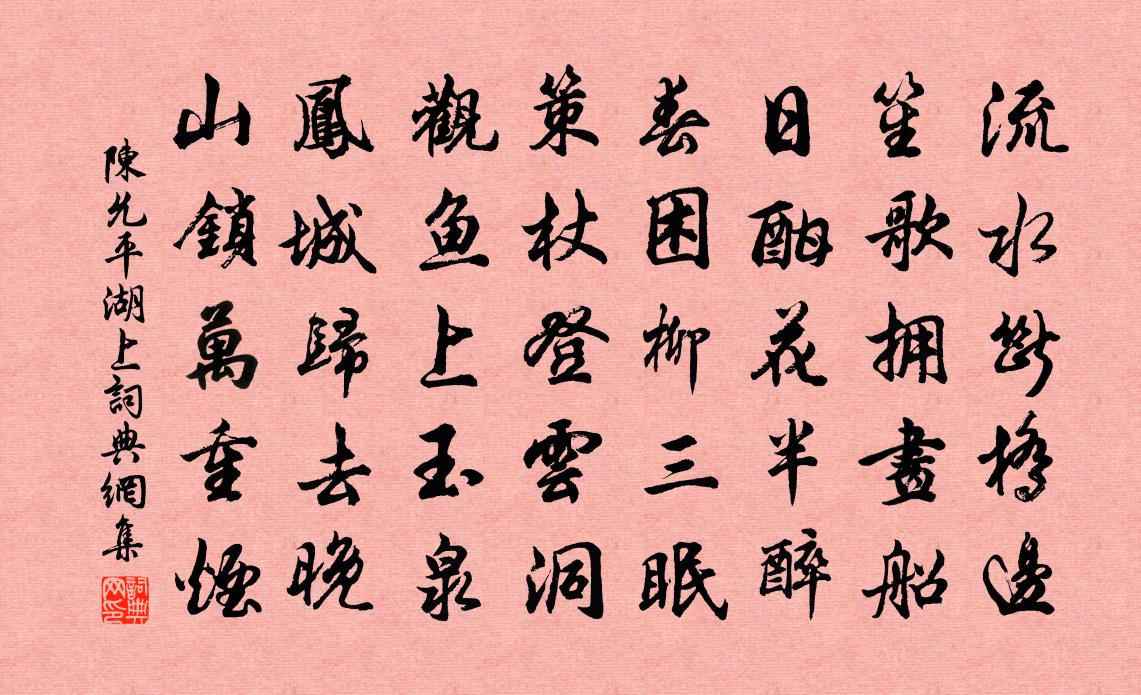 流水斷橋邊
笙歌擁畫船
日酣花半醉
春困柳三眠
策杖登雲洞
觀魚上玉泉
鳳城歸去晚
山鎖萬重煙
陳允平湖上詞典網集
詞典